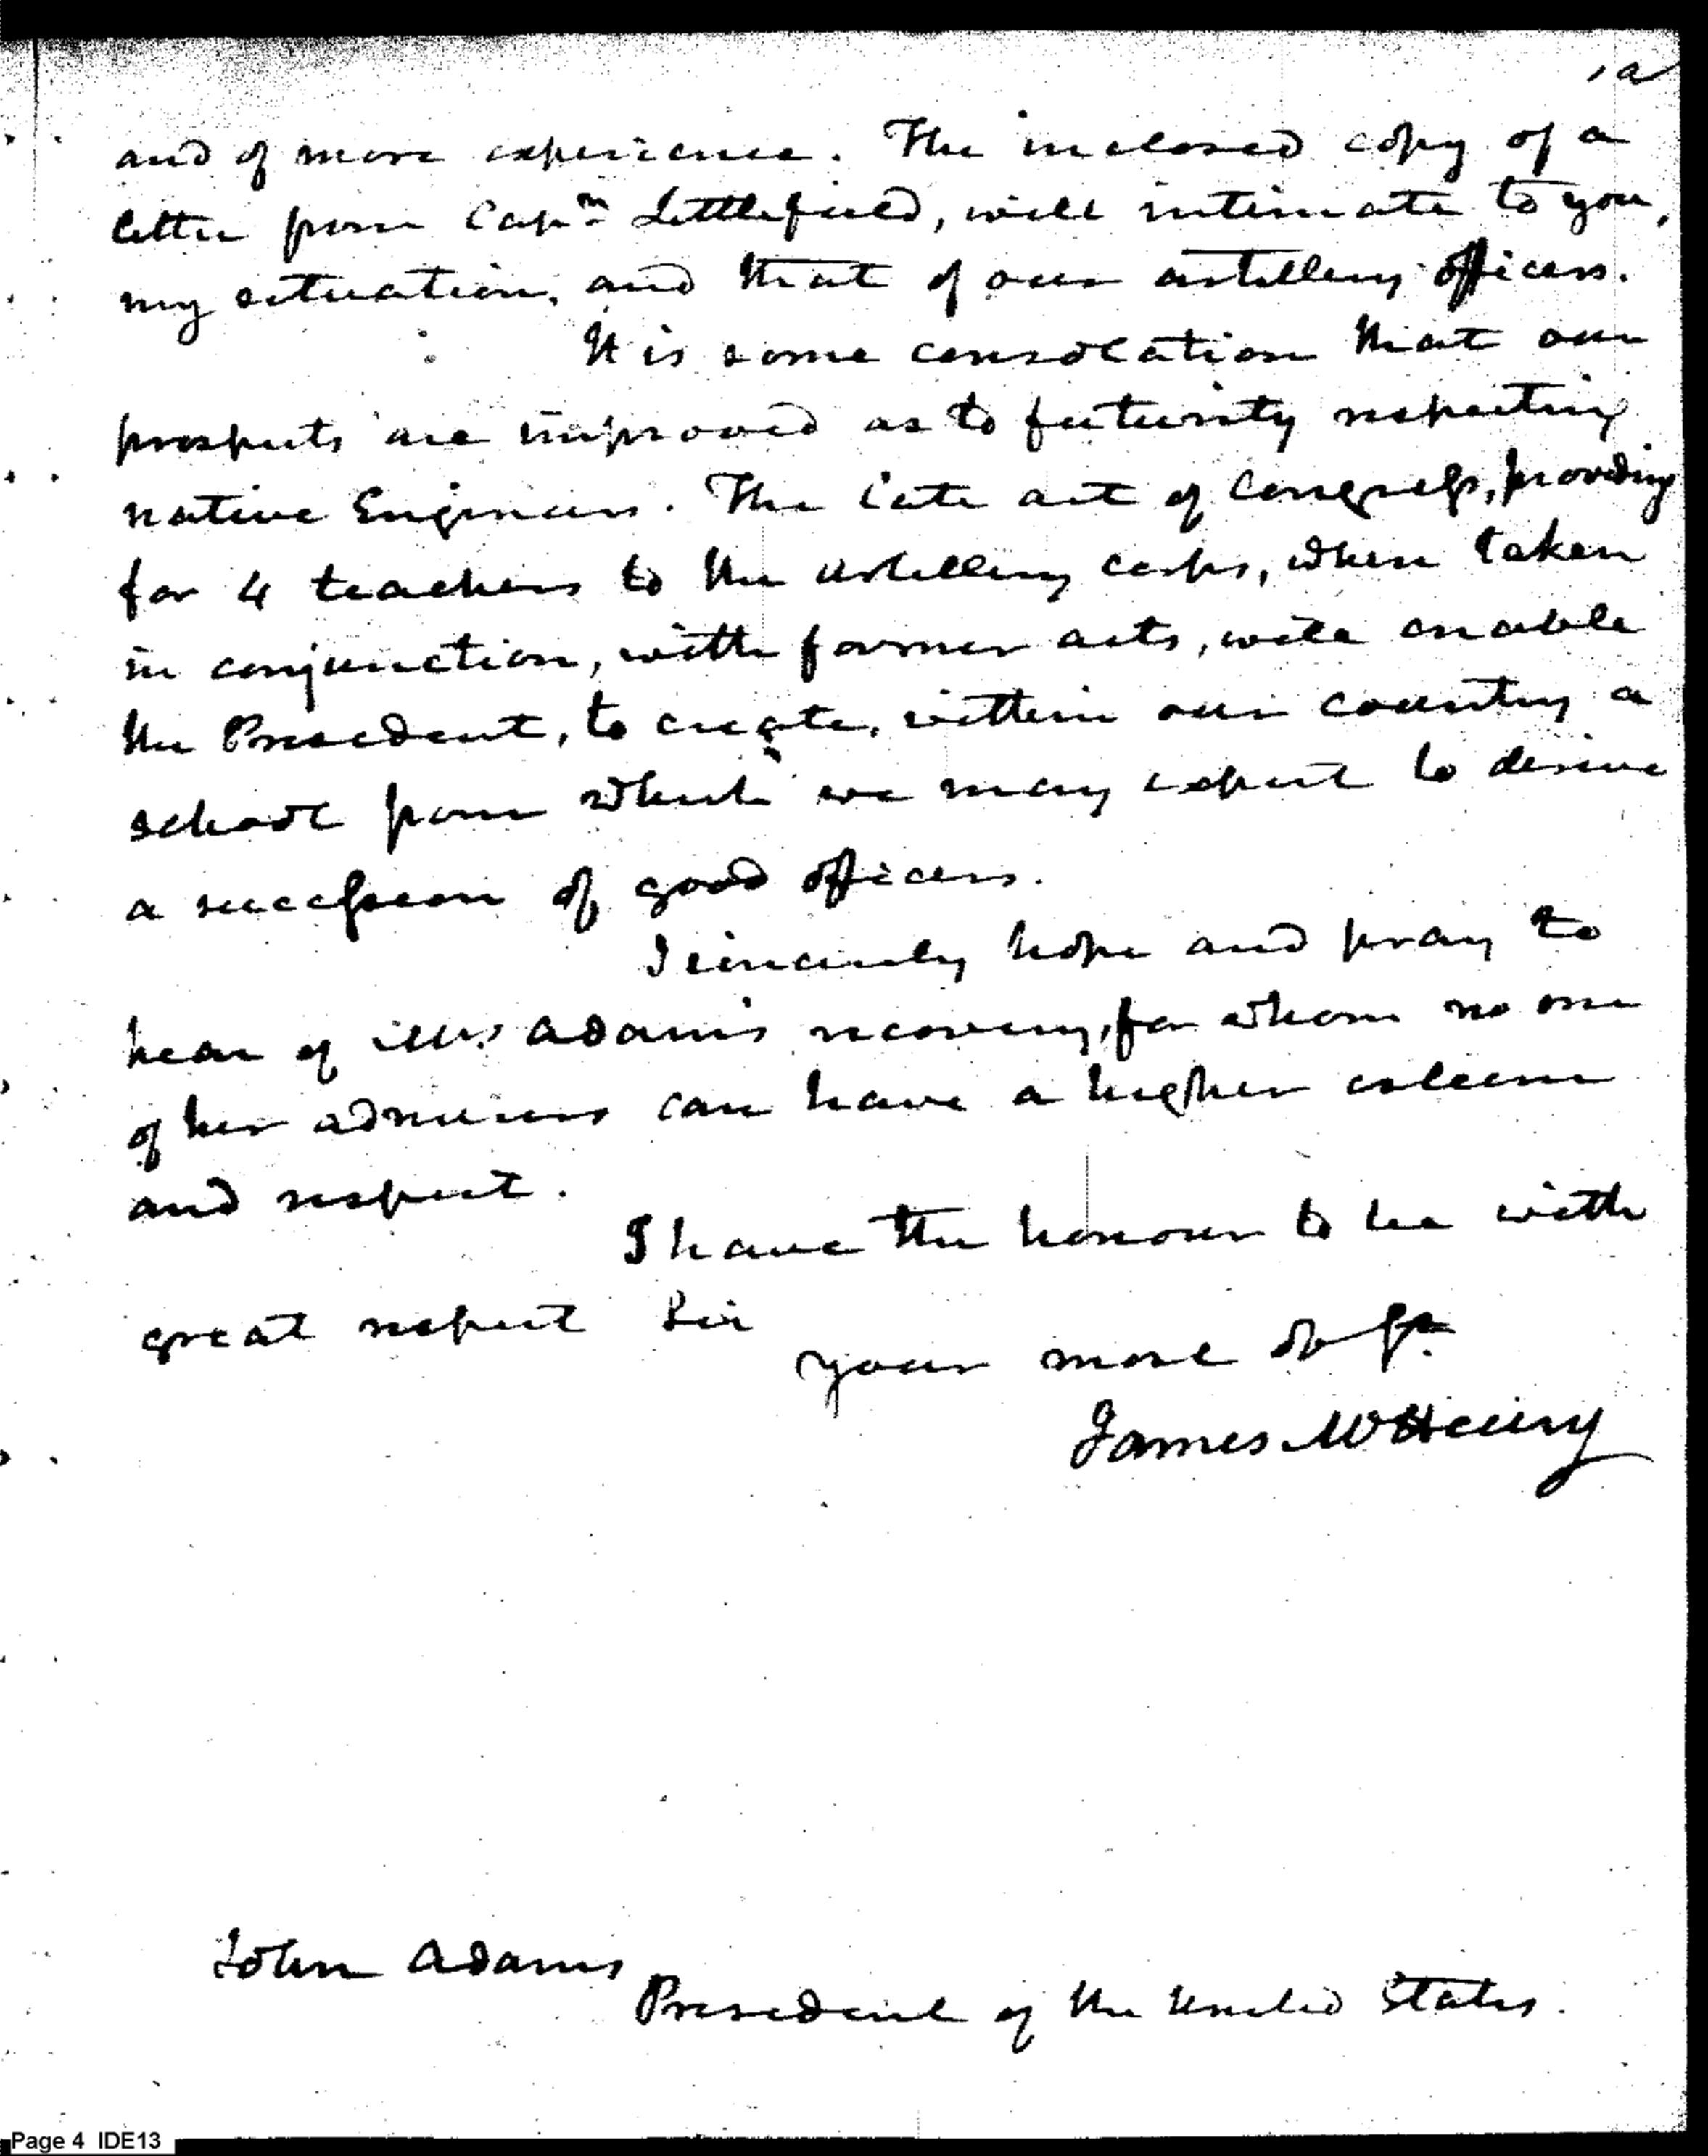 a
and of more experience. The inclosed copy of a
letter from Capn Littlefield, will intimate to you,
my situation, and that of our artillery officers.
It is some consolation that our
prospects are improved as to futurity respecting
native Engineers. The late act of Congress, providing
for 4 teachers to the artillery corps, when taken
in conjunction, with former acts, will enable
the President, to create, within our country a
school from which we may expect to derive
a succession of good officers.
I sincerely hope and pray to
hear of Mrs Adam's recovery, for whom no one
of her admirers can have a higher esteem
and respect.
I have the honour to be with
great respect Sir
your most ob St.
James McHenry
John Adams
President of the United States.
Page 4 IDE13